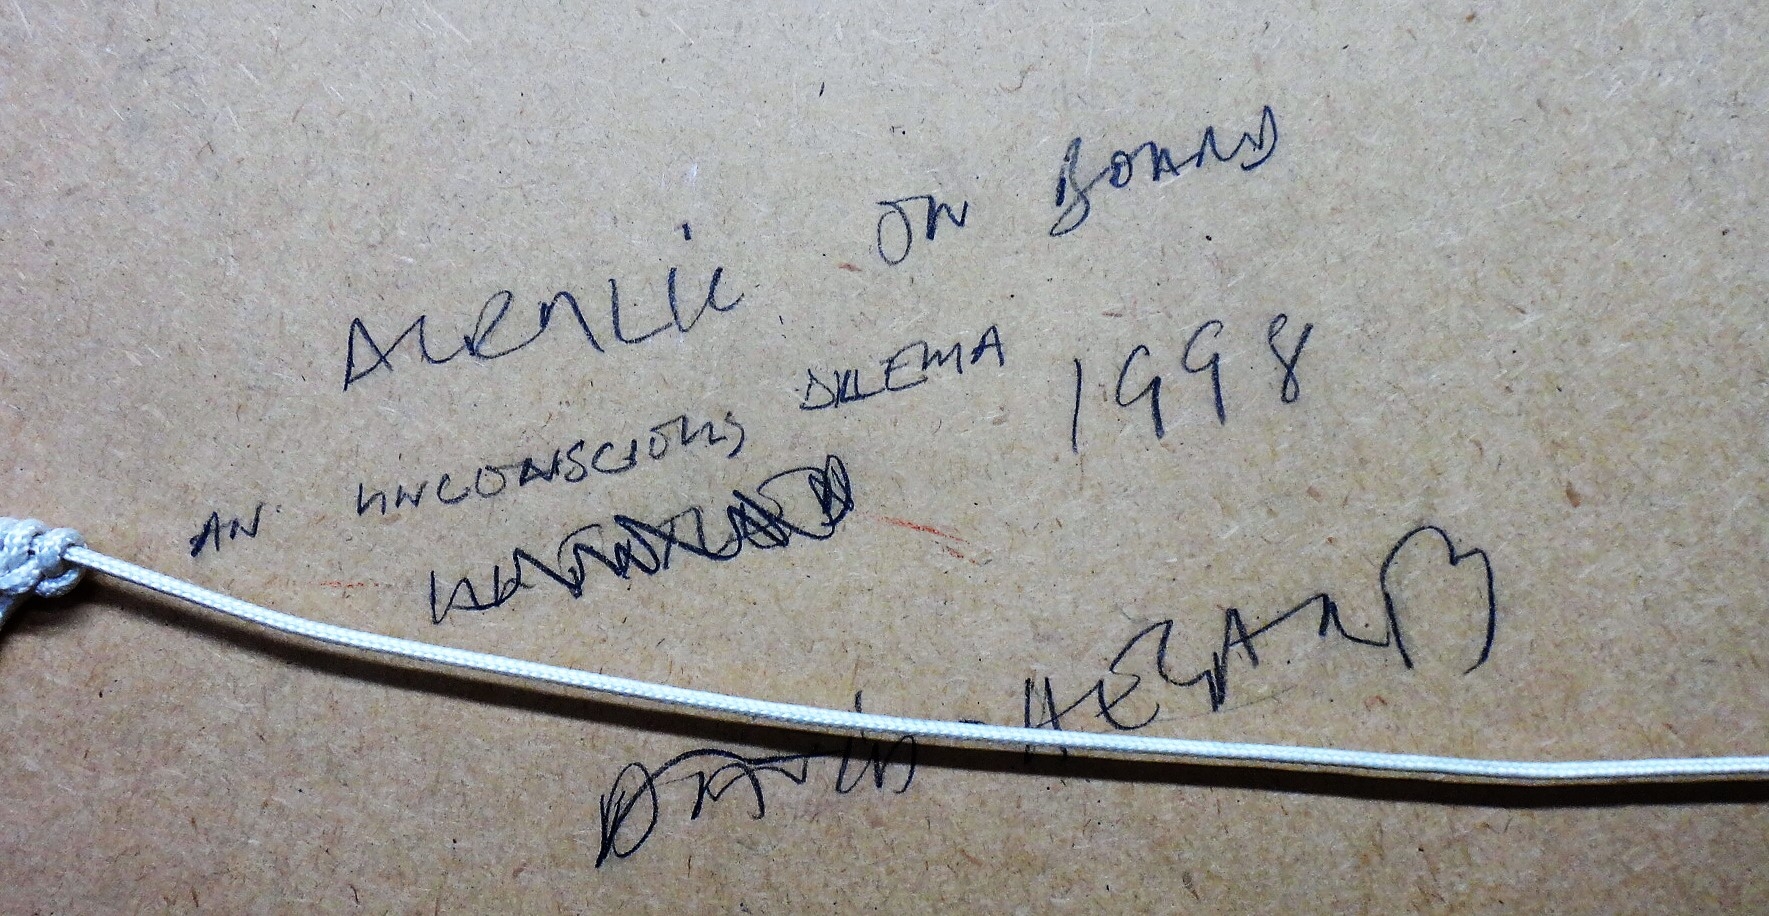 ACRYLIC ON BOARD
AN UNCONSCIOUS DILEMA 1998
DAVID HEGARTY